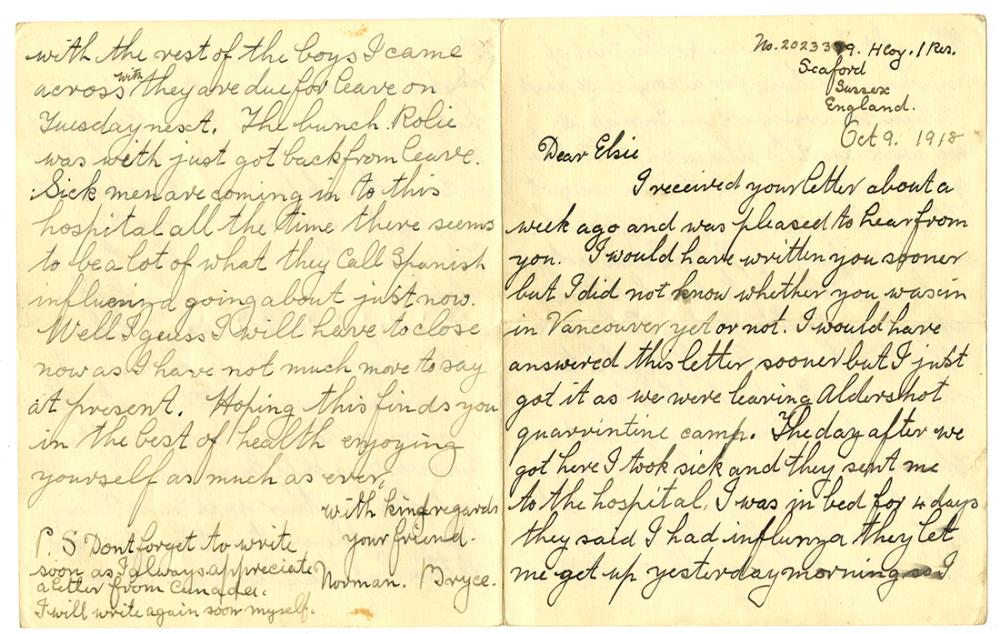 No. 2023379. Hlqy. 1 Res.
Seaford
Sussex
England.
Oct 9. 1918
Dear Elsie
I received your letter about a
week ago and was pleased to hear from
you. I would have written you sooner
but I did not know whether you was in
in Vancouver yet or not. I would have
answered this letter sooner but I just
got it as we were leaving Aldershot
quarrintine camp. The day after we
got here I took sick and they sent me
to the hospital. I was in bed for 4 days
they said I had influnza they let
me get up yesterday morning so I
with the rest of the boys I came
across with they are due for leave on
Tuesday next. The bunch Rolie
was with just got back from leave.
Sick men are coming in to this
hospital all the time there seems
to be a lot of what they call Spanish
influenza going about just now.
Well I guess I will have to close
now as I have not much more to say
at present. Hoping this finds you
in the best of health enjoying
yourself as much as ever,
with kind regards
your friend.
Norman. Bryce.
P. S Dont forget to write
soon as I always appreciate
a letter from Canada.
I will write again soon myself.